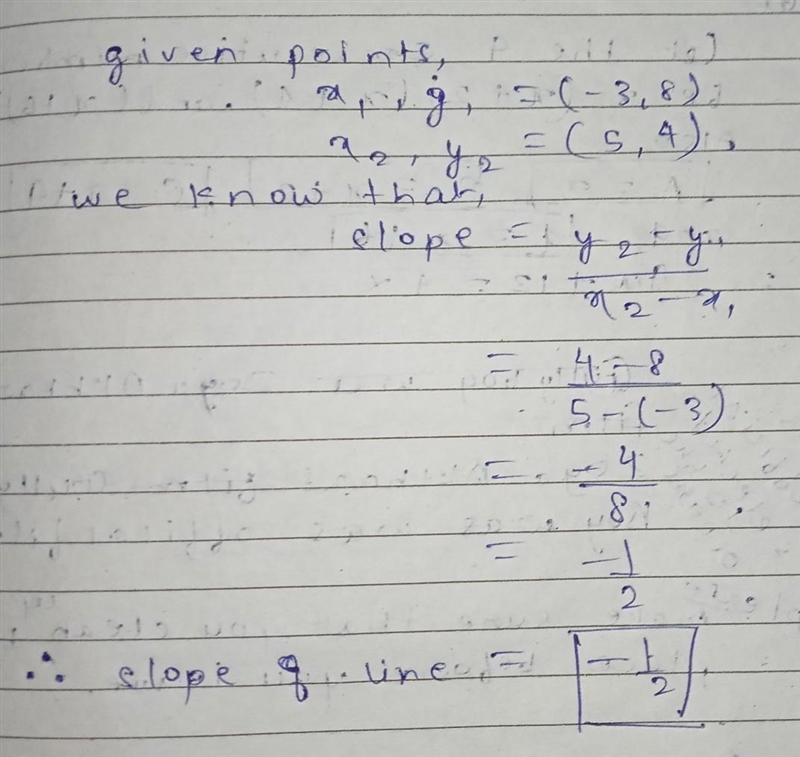 given points,
x₁, y₁ = (-3, 8)
x₂, y₂ = (5, 4).
we know that,
slope = y₂ - y₁
x₂ - x₁
= 4 - 8
5 - (-3)
= -4
8
= -1
2
∴ slope of line = -1
2